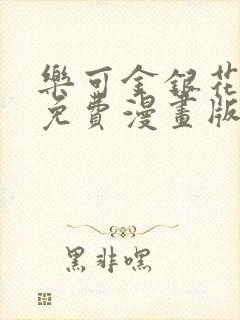 樂可金銀花
免費漫畫版
黑非嘿